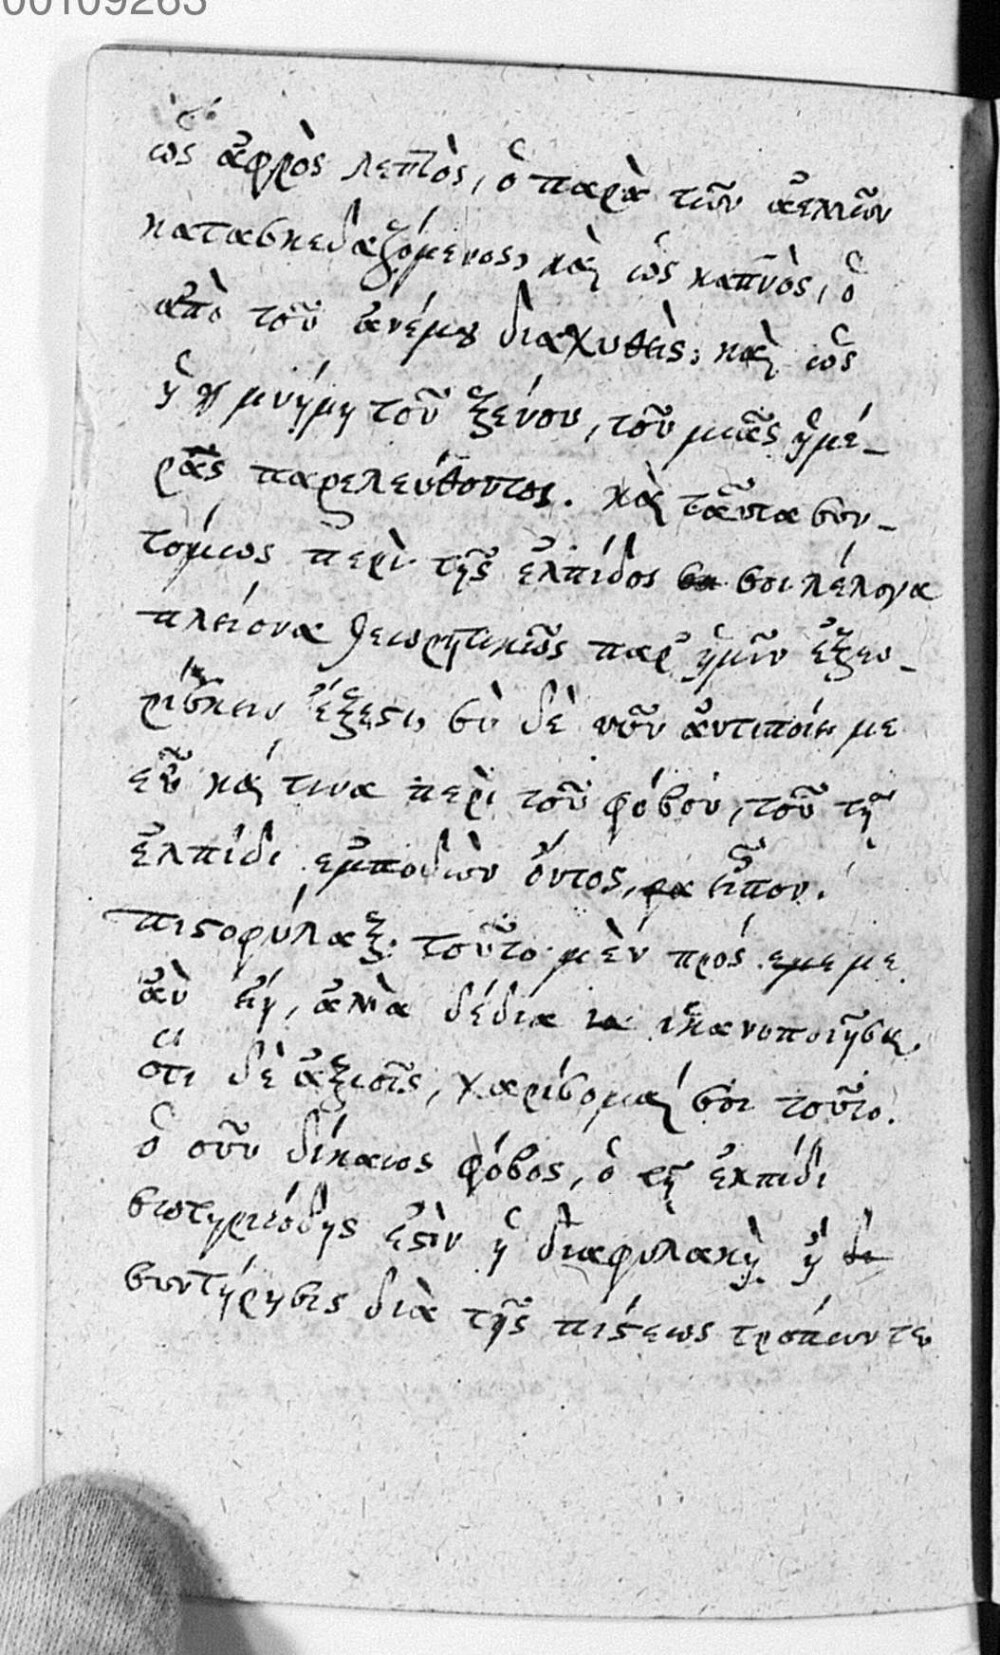 00109263
ὡς ἀφρὸς λεπτὸς, ὁ παρὰ τῶν ἀελλῶν
κατασκεδαζόμενος, καὶ ὡς καπνὸς, ὁ
ἀπὸ τοῦ ἀνέμου διαχυθείς; καὶ ὡς
ἡ μνήμη τοῦ ξένου, τοῦ μιᾶς ἡμέ-
ρας παρελεύθοντος. καὶ ταῦτα συν-
τόμως περὶ τῆς ἐλπίδος σοι λέλογα
πλείονα θεωρητικῶς παρ' ἡμῖν ἐξευ-
ρίσκειν ἔξεστι, σὺ δὲ νῦν ἀντιποίει με
εὖ καί τινα περὶ τοῦ φόβου, τοῦ τῇ
ἐλπίδι ἐμποδὼν ὄντος, εἶπον.
πιστοφύλαξ. τοῦτο μὲν πρός ἐμε με
ἂν εἴη, ἀλλὰ δέδια ἱκανοποιῆσαι
ὅτι δὲ ἀξιοῖς, χαρίσομαί σοι τοῦτο.
ὁ οὖν δίκαιος φόβος, ὁ τῇ ἐλπίδι
σωτηριώδης ἐστὶν ἡ διαφυλακὴ ἢ
συντήρησις διὰ τῆς πίστεως τρόπων τε